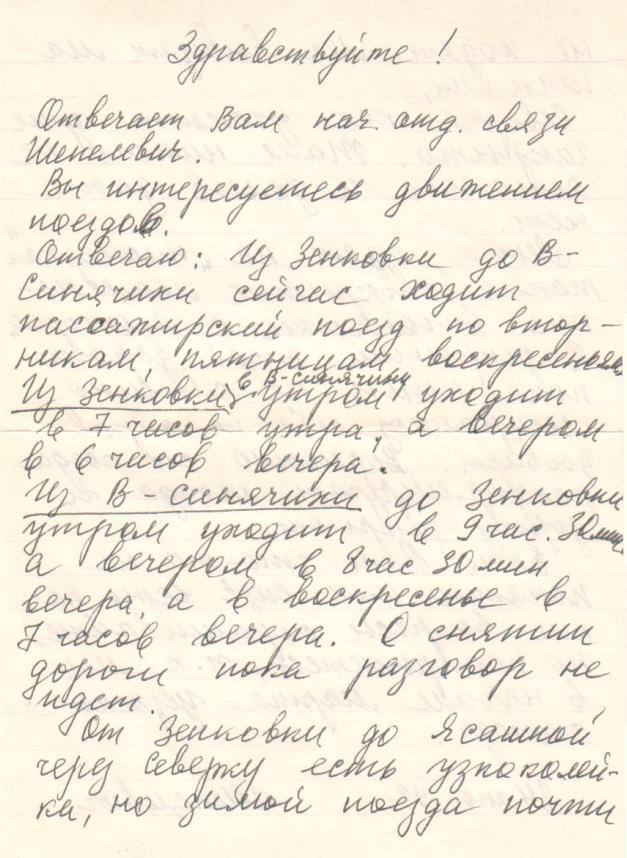 Здравствуйте!
Отвечает Вам нач. отд. связи
Шепелевич.
Вы интересуетесь движением
поездов.
Отвечаю: Из Зенковки до В-
Синячихи сейчас ходит
пассажирский поезд по втор-
никам, пятницам воскресеньям
в В-синячиху
Из Зенковки утром уходит
в 7 часов утра, а вечером
в 6 часов вечера.
Из В-синячихи до Зенковки
утром уходит в 9 час. 30 мин.
а вечером в 8 час 30 мин
вечера, а в воскресенье в
7 часов вечера. О снятии
дороги пока разговор не
идет.
От Зенковки до Ясашной
через Северку есть узкоколей-
ка, но зимой поезда почти